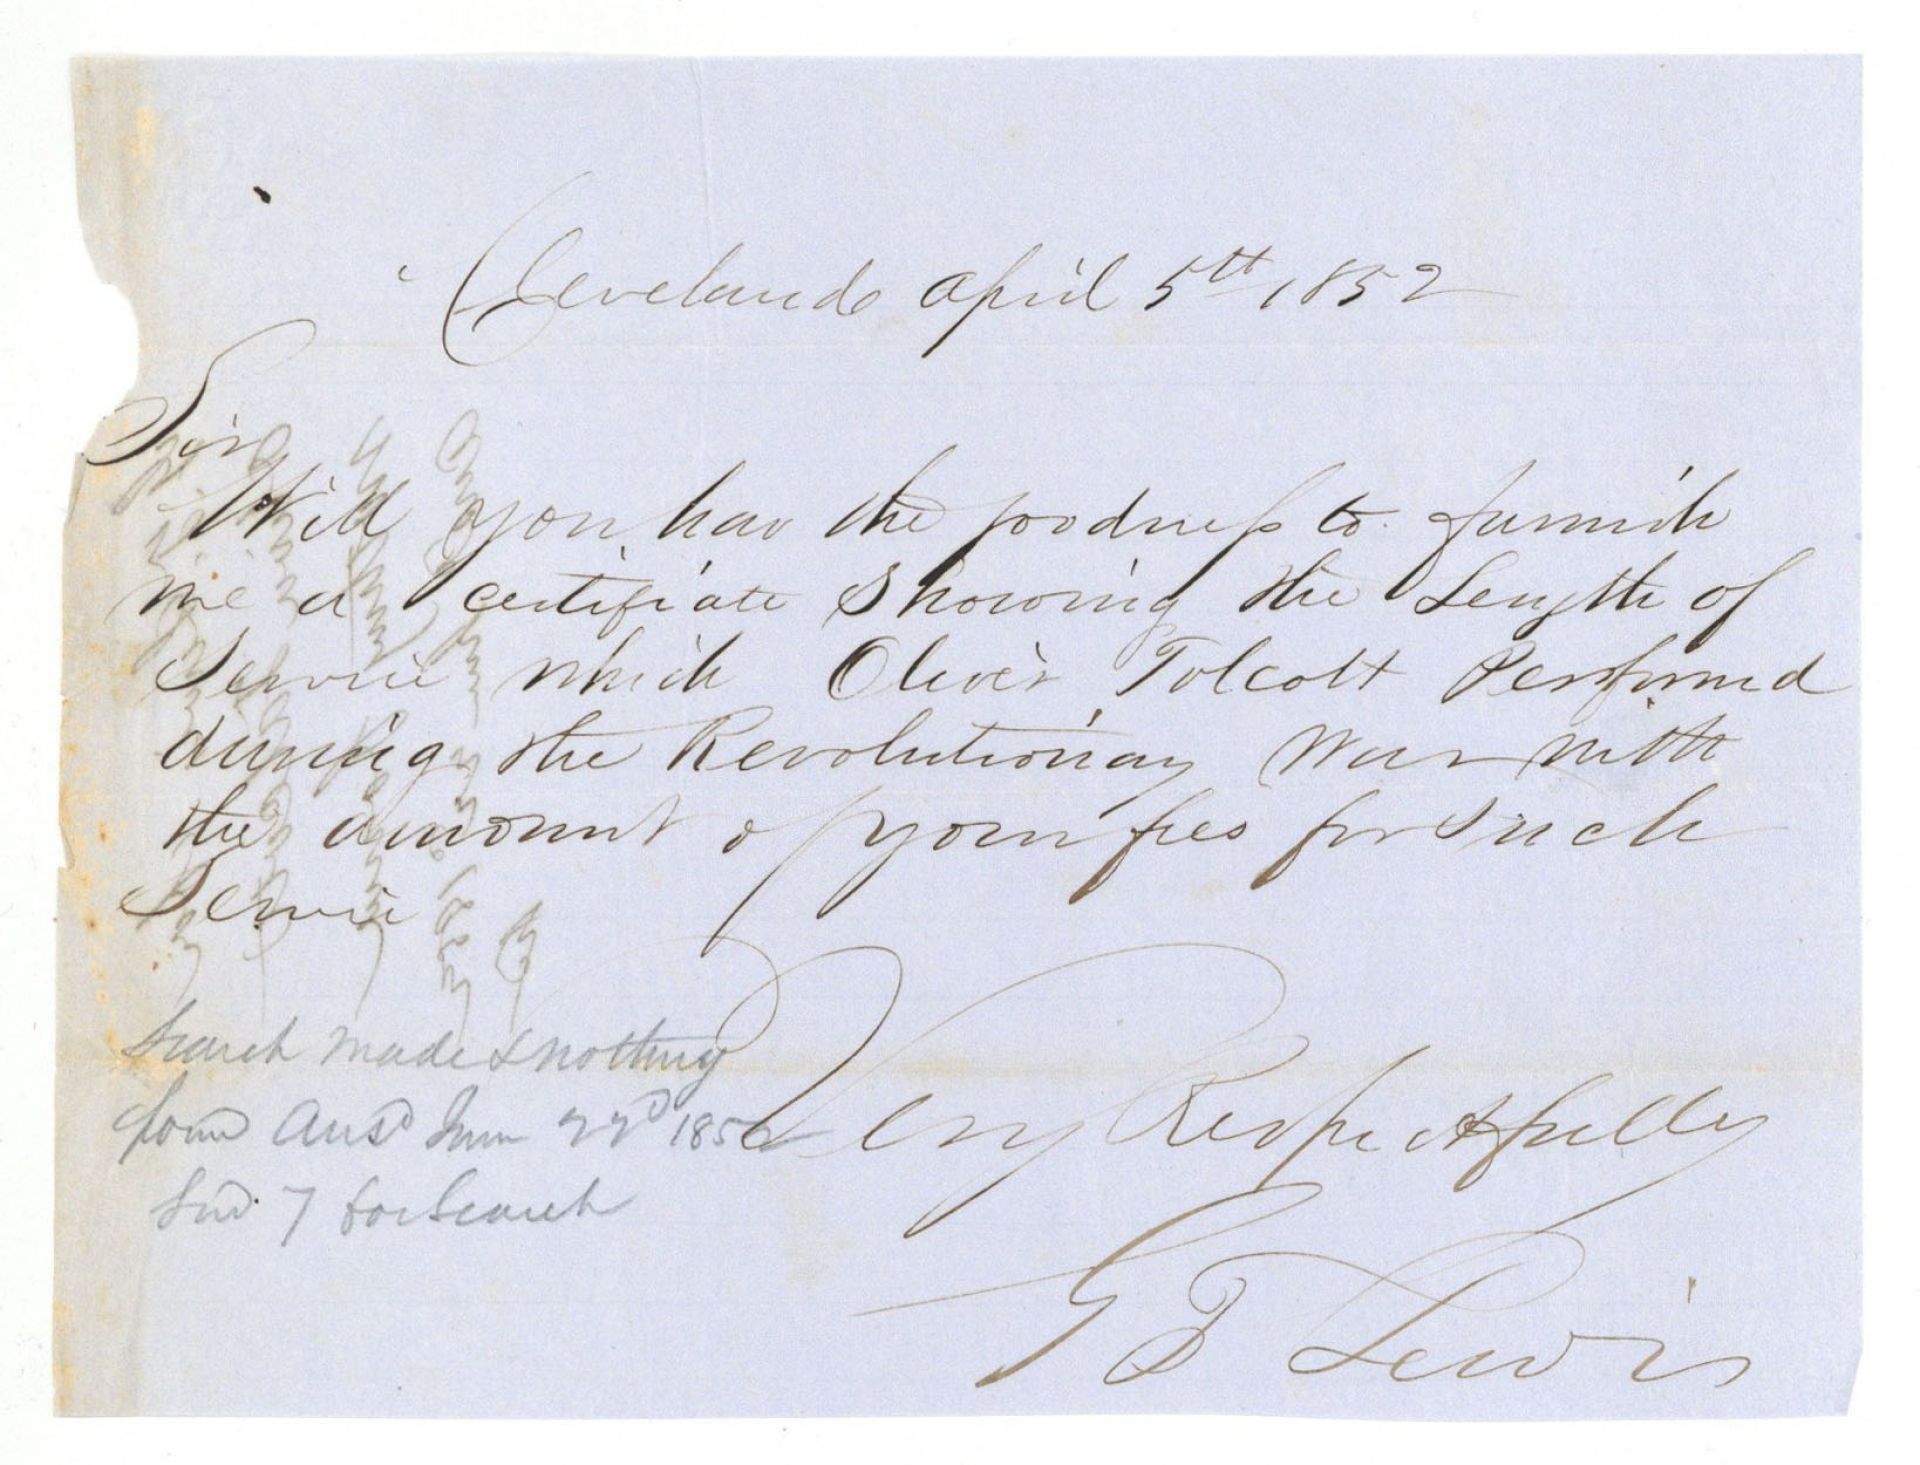 Cleveland April 5th 1852
Sir
Will you hav the goodness to furnish
me a certifiate Showing the Length of
Service which Oliver Tolcott Performed
during the Revolutionay War with
the amount of your fees for Such
Service
Very Respectfully
G T Lewis
Search made & nothing
foun Ansd June 22d 1852
for Search